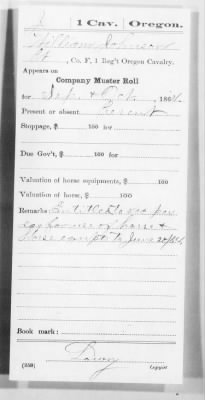 J | 1 Cav. | Oregon.
William Johnson
Pt, Co. F, 1 Reg't Oregon Cavalry.
Appears on
Company Muster Roll
for Sep. & Oct., 1864.
Present or absent Present
Stoppage, $ 100 for
Due Gov't, $ 100 for
Valuation of horse equipments, $ 100
Valuation of horse, $ 100
Remarks: Entitled to
day for use of horse &
horse equipts June 20/64
Book mark:
(358) Copyist.